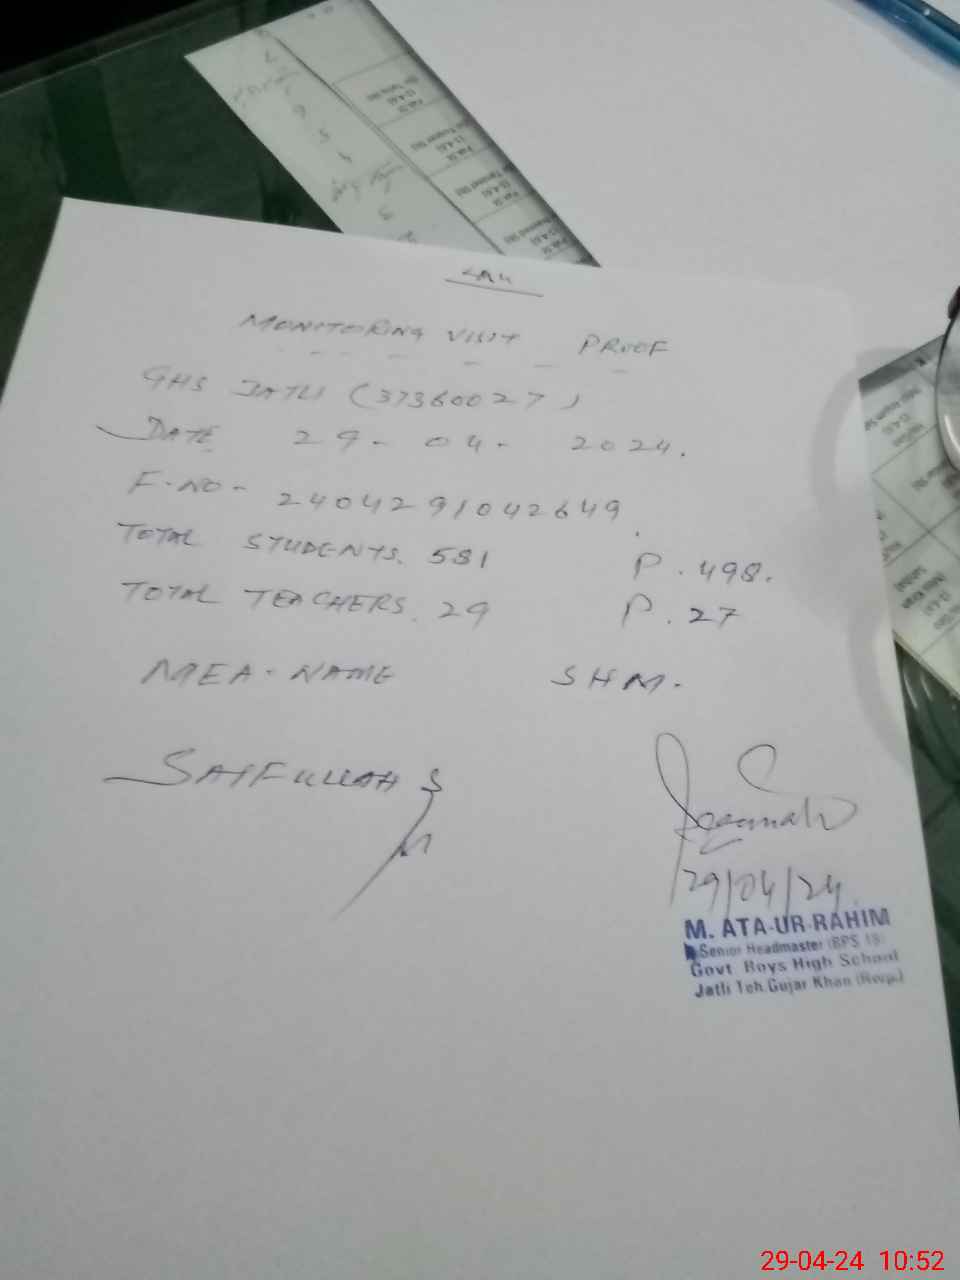 MONITORING VISIT PROOF
GHS JATLI (37360027)
DATE 29-04-2024.
F.NO- 2404291042649
TOTAL STUDENTS. 581 P. 498.
TOTAL TEACHERS. 29 P. 27
MEA-NAME SHM.
SAIFULLAH
29/04/24
M. ATA-UR-RAHIM
Senior Headmaster (BPS 19)
Govt Boys High School
Jatli Teh.Gujar Khan (Rwp.)
29-04-24 10:52